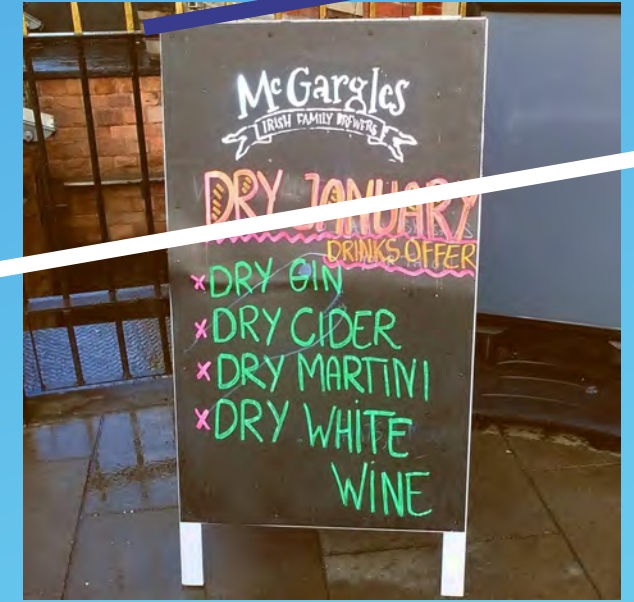 McGargles
IRISH FAMILY BREWERS
DRY JANUARY
DRINKS OFFER
×DRY GIN
×DRY CIDER
×DRY MARTINI
×DRY WHITE
WINE